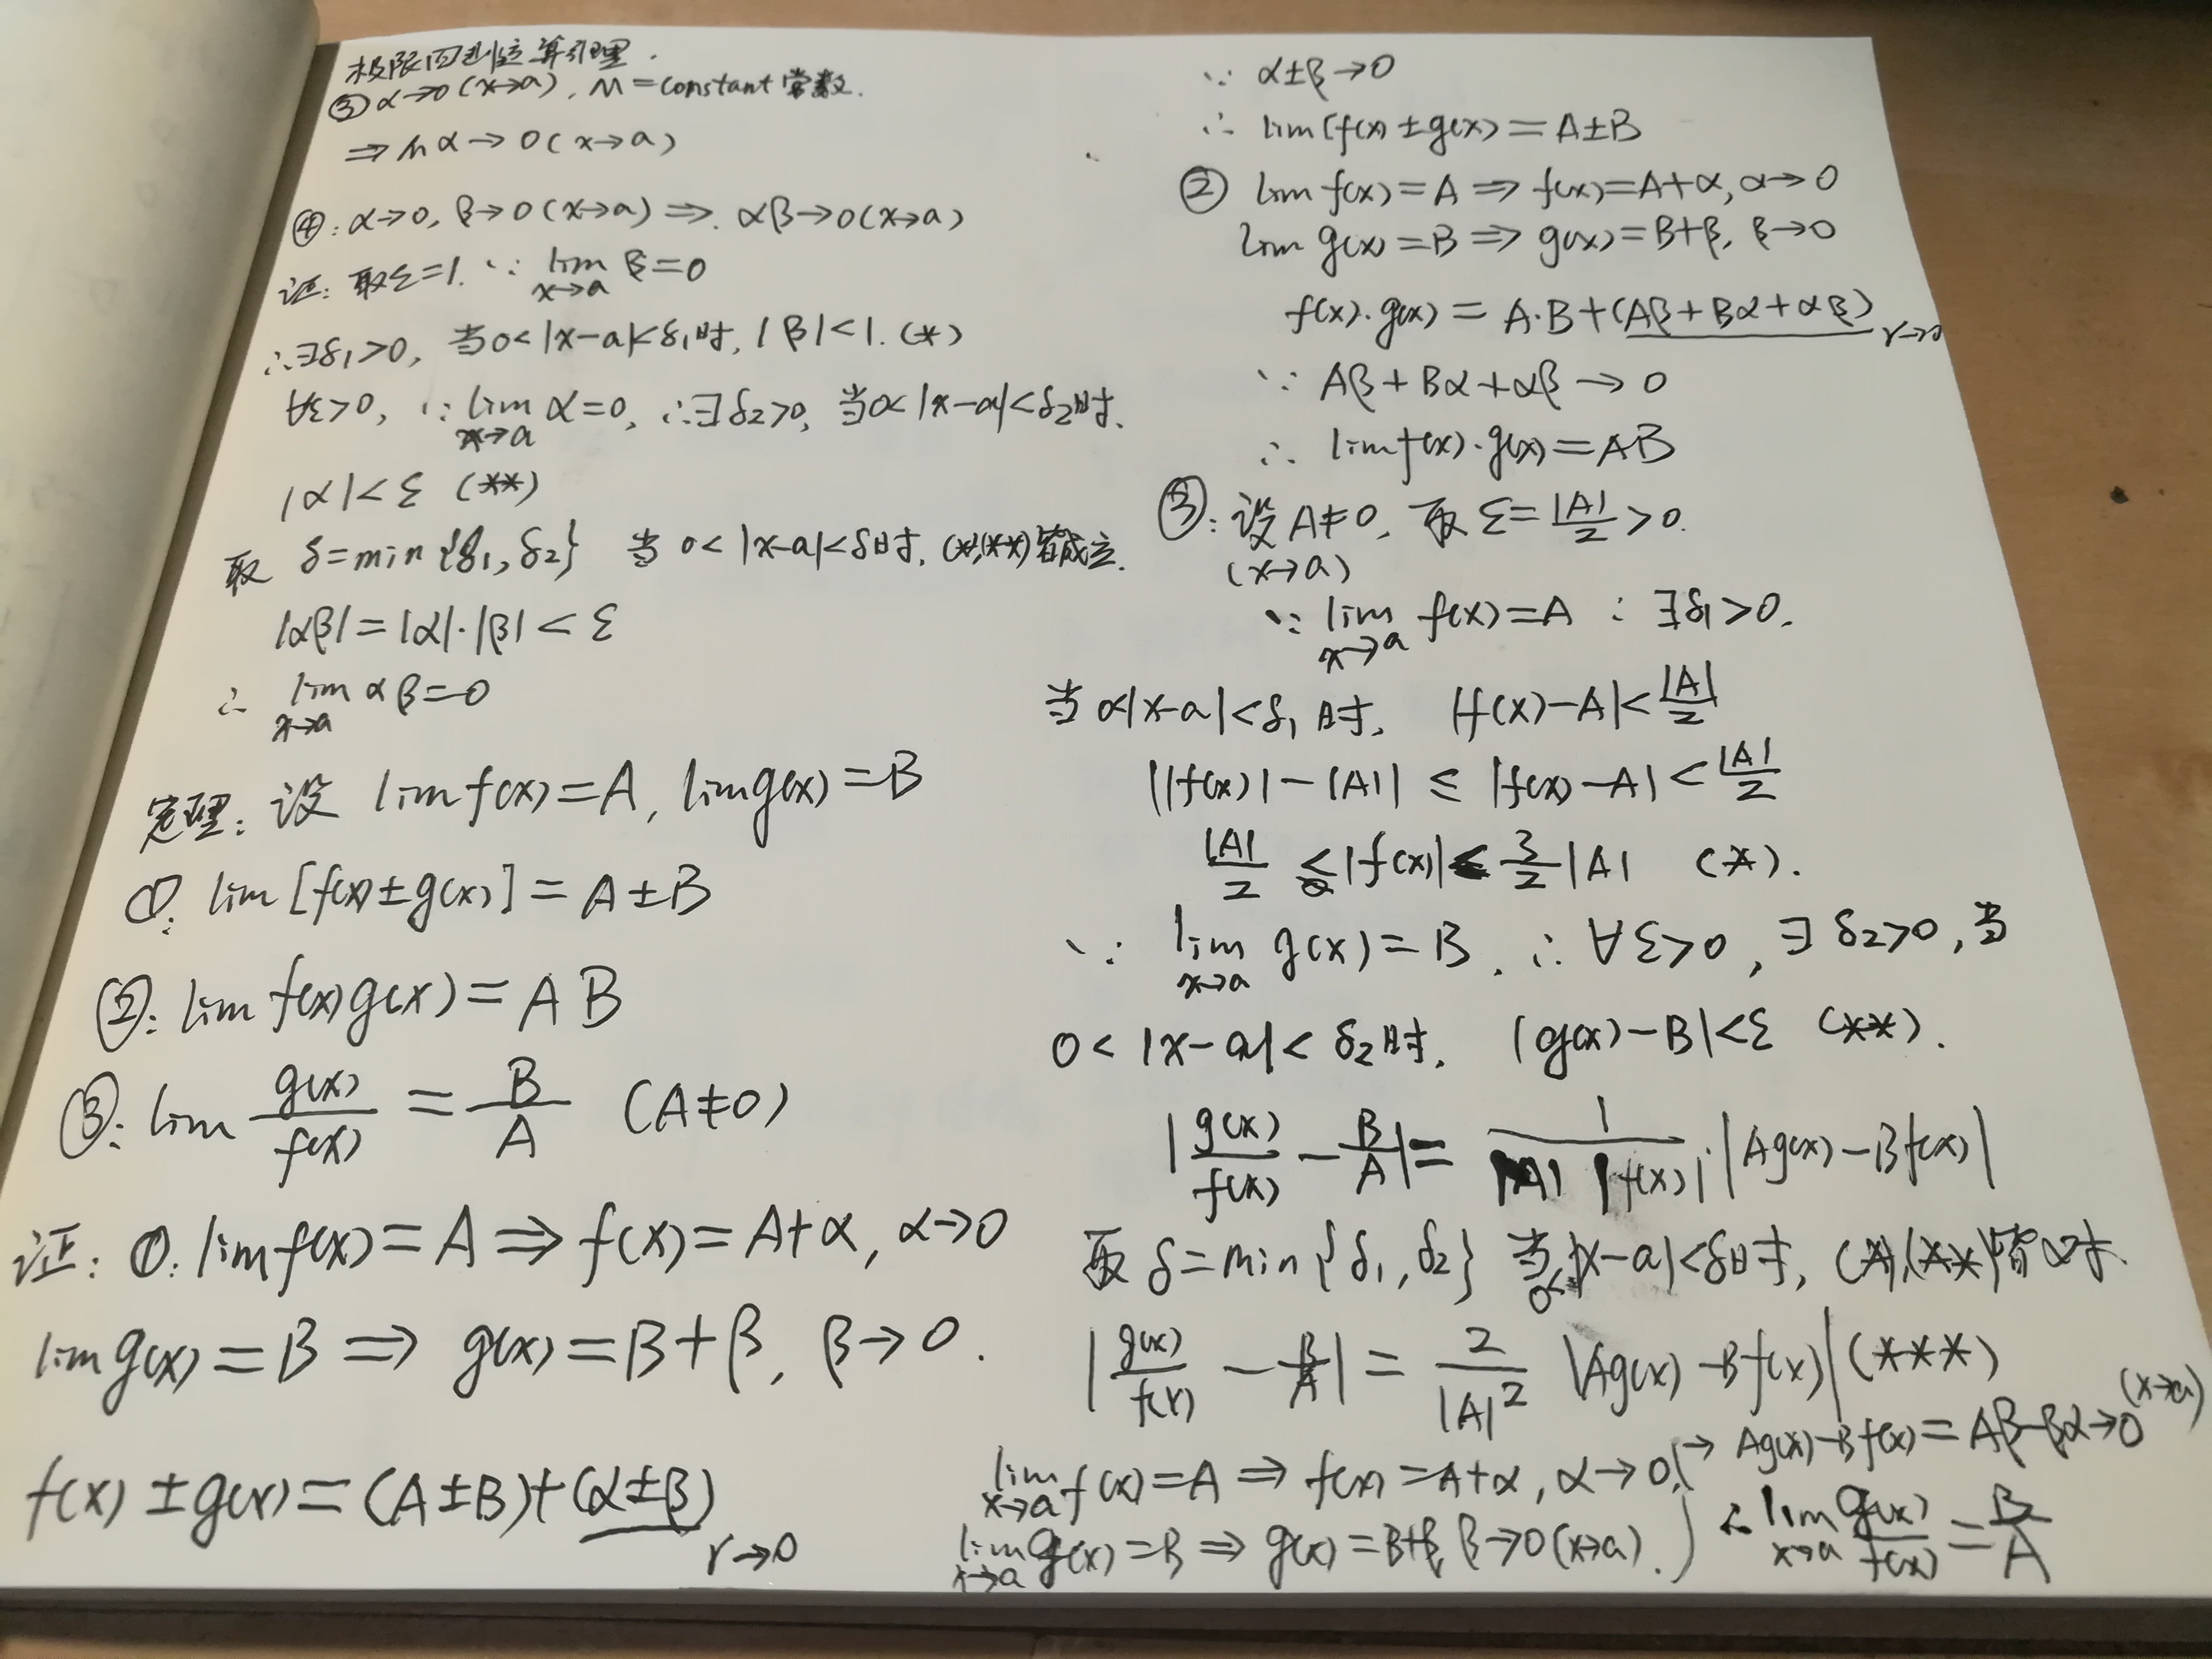 极限四则运算引理.
③ α→0 (x→a), M=constant 常数.
⇒ Mα→0(x→a)
④: α→0, β→0(x→a)⇒. αβ→0(x→a)
证: 取ε=1. ∵ lim_{x→a} β=0
∴∃δ₁>0, 当0<|x-a|<δ₁时, |β|<1. (*)
∀ε>0, ∵ lim_{x→a} α=0, ∴∃δ₂>0, 当0<|x-a|<δ₂时.
|α|<ε (**)
取 δ=min{δ₁,δ₂} 当 0<|x-a|<δ时, (*),(**)皆成立.
|αβ|=|α|·|β|<ε
∴ lim_{x→a} αβ=0
定理: 设 lim f(x)=A, lim g(x)=B
①: lim [f(x)±g(x)] = A±B
②: lim f(x)g(x) = AB
③: lim g(x)/f(x) = B/A (A≠0)
证: ①: lim f(x)=A ⇒ f(x)=A+α, α→0
lim g(x)=B ⇒ g(x)=B+β, β→0.
f(x)±g(x)=(A±B)+(α±β)
γ→0
∵ α±β→0
∴ lim[f(x)±g(x)=A±B
② lim f(x)=A ⇒ f(x)=A+α, α→0
lim g(x)=B ⇒ g(x)=B+β, β→0
f(x)·g(x)=A·B+(Aβ+Bα+αβ)
γ→0
∵ Aβ+Bα+αβ→0
∴ lim f(x)·g(x)=AB
③: 设A≠0, 取 ε=|A|/2>0.
(x→a)
∵ lim_{x→a} f(x)=A ∴ ∃δ₁>0.
当0<|x-a|<δ₁时, |f(x)-A|<|A|/2
||f(x)|-|A||≤|f(x)-A|<|A|/2
|A|/2 ≤|f(x)|< 3/2|A| (*).
∵ lim_{x→a} g(x)=B. ∴ ∀ε>0, ∃δ₂>0, 当
0<|x-a|<δ₂时. |g(x)-B|<ε (**).
|g(x)/f(x) - B/A| = 1/(|A||f(x)|)·|Ag(x)-Bf(x)|
取 δ=min{δ₁,δ₂} 当0<|x-a|<δ时, (*),(**)皆
|g(x)/f(x) - B/A| = 2/|A|² |Ag(x)-Bf(x)| (***)
lim_{x→a} f(x)=A ⇒ f(x)=A+α, α→0.
lim_{x→a} g(x)=B ⇒ g(x)=B+β, β→0(x→a).
→ Ag(x)-Bf(x)=Aβ-Bα→0 (x→a)
∴ lim_{x→a} g(x)/f(x) = B/A